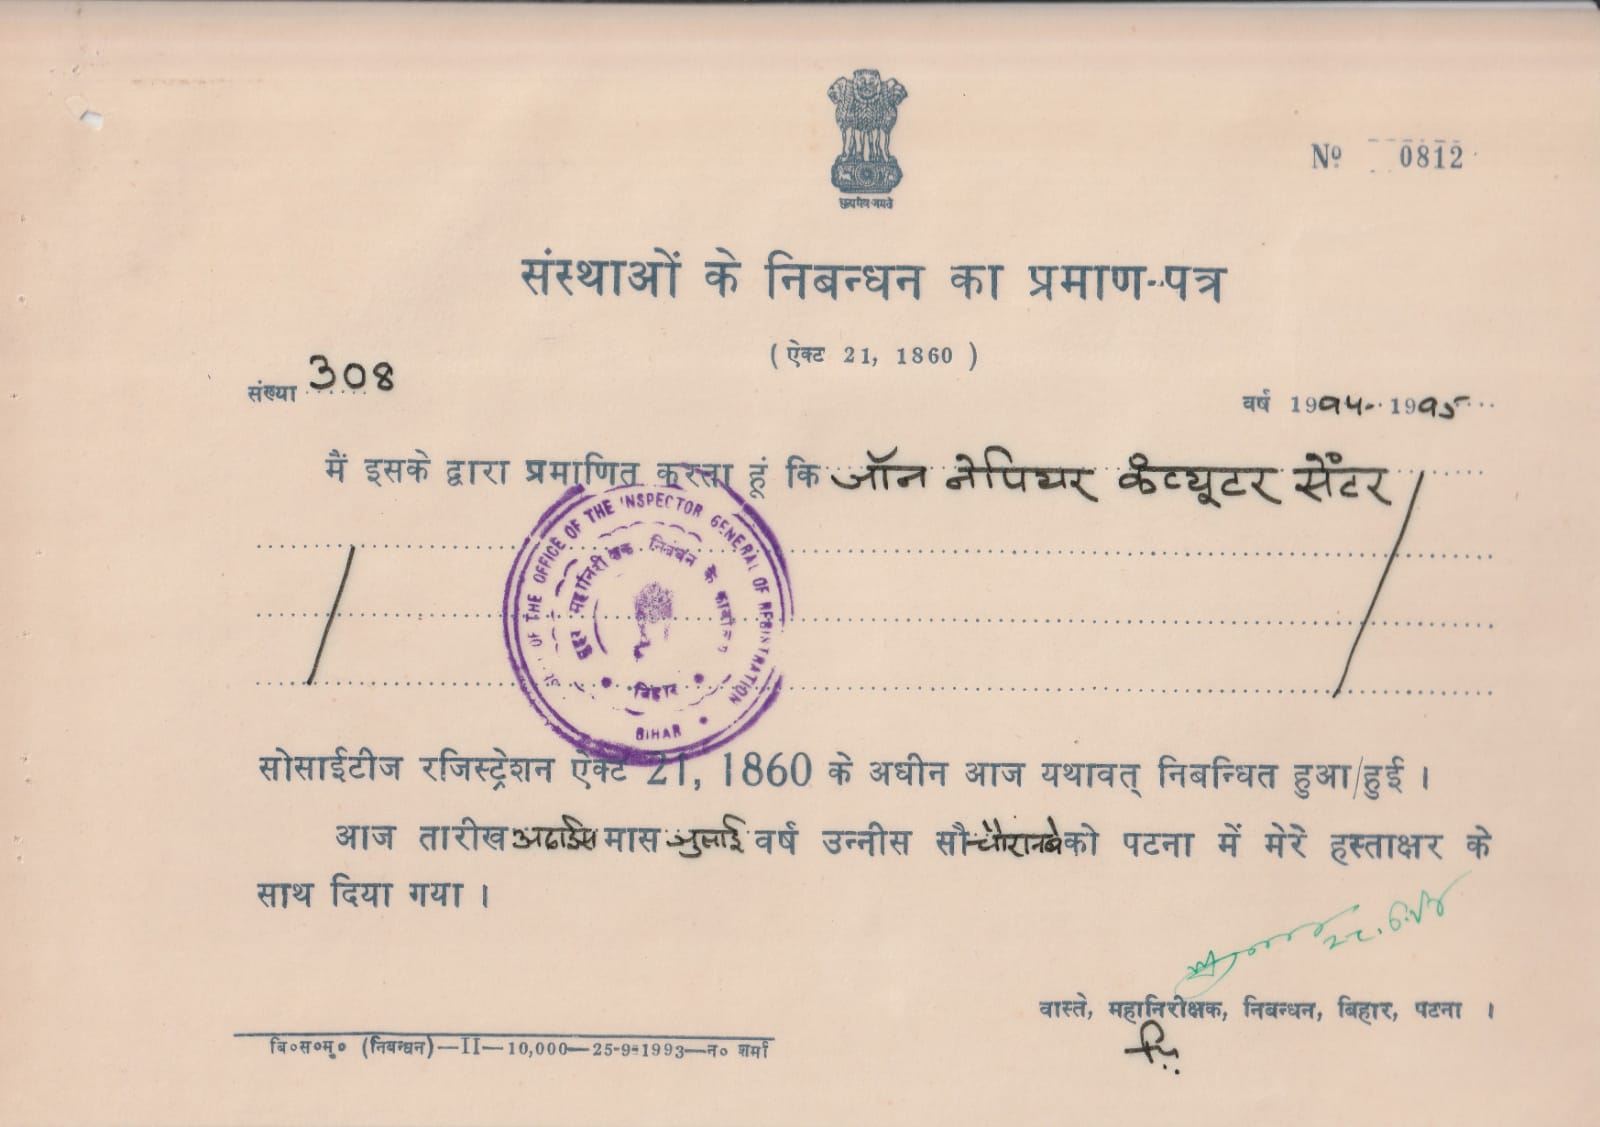 सत्यमेव जयते
Nº 0812
संस्थाओं के निबन्धन का प्रमाण-पत्र
( ऐक्ट 21, 1860 )
संख्या 308
वर्ष 1994-1995
मैं इसके द्वारा प्रमाणित करता हूं कि जॉन नेपियर कंप्यूटर सेंटर
OF THE OFFICE OF THE INSPECTOR GENERAL OF REGISTRATION
निबंधन के
बिहार
BIHAR
सोसाईटीज रजिस्ट्रेशन ऐक्ट 21, 1860 के अधीन आज यथावत् निबन्धित हुआ/हुई ।
आज तारीख अठाईस मास जुलाई वर्ष उन्नीस सौ चौरानबे को पटना में मेरे हस्ताक्षर के
साथ दिया गया ।
वास्ते, महानिरीक्षक, निबन्धन, बिहार, पटना ।
बि०स०मु० (निबन्धन)—II—10,000—25-9-1993—न० शर्मा